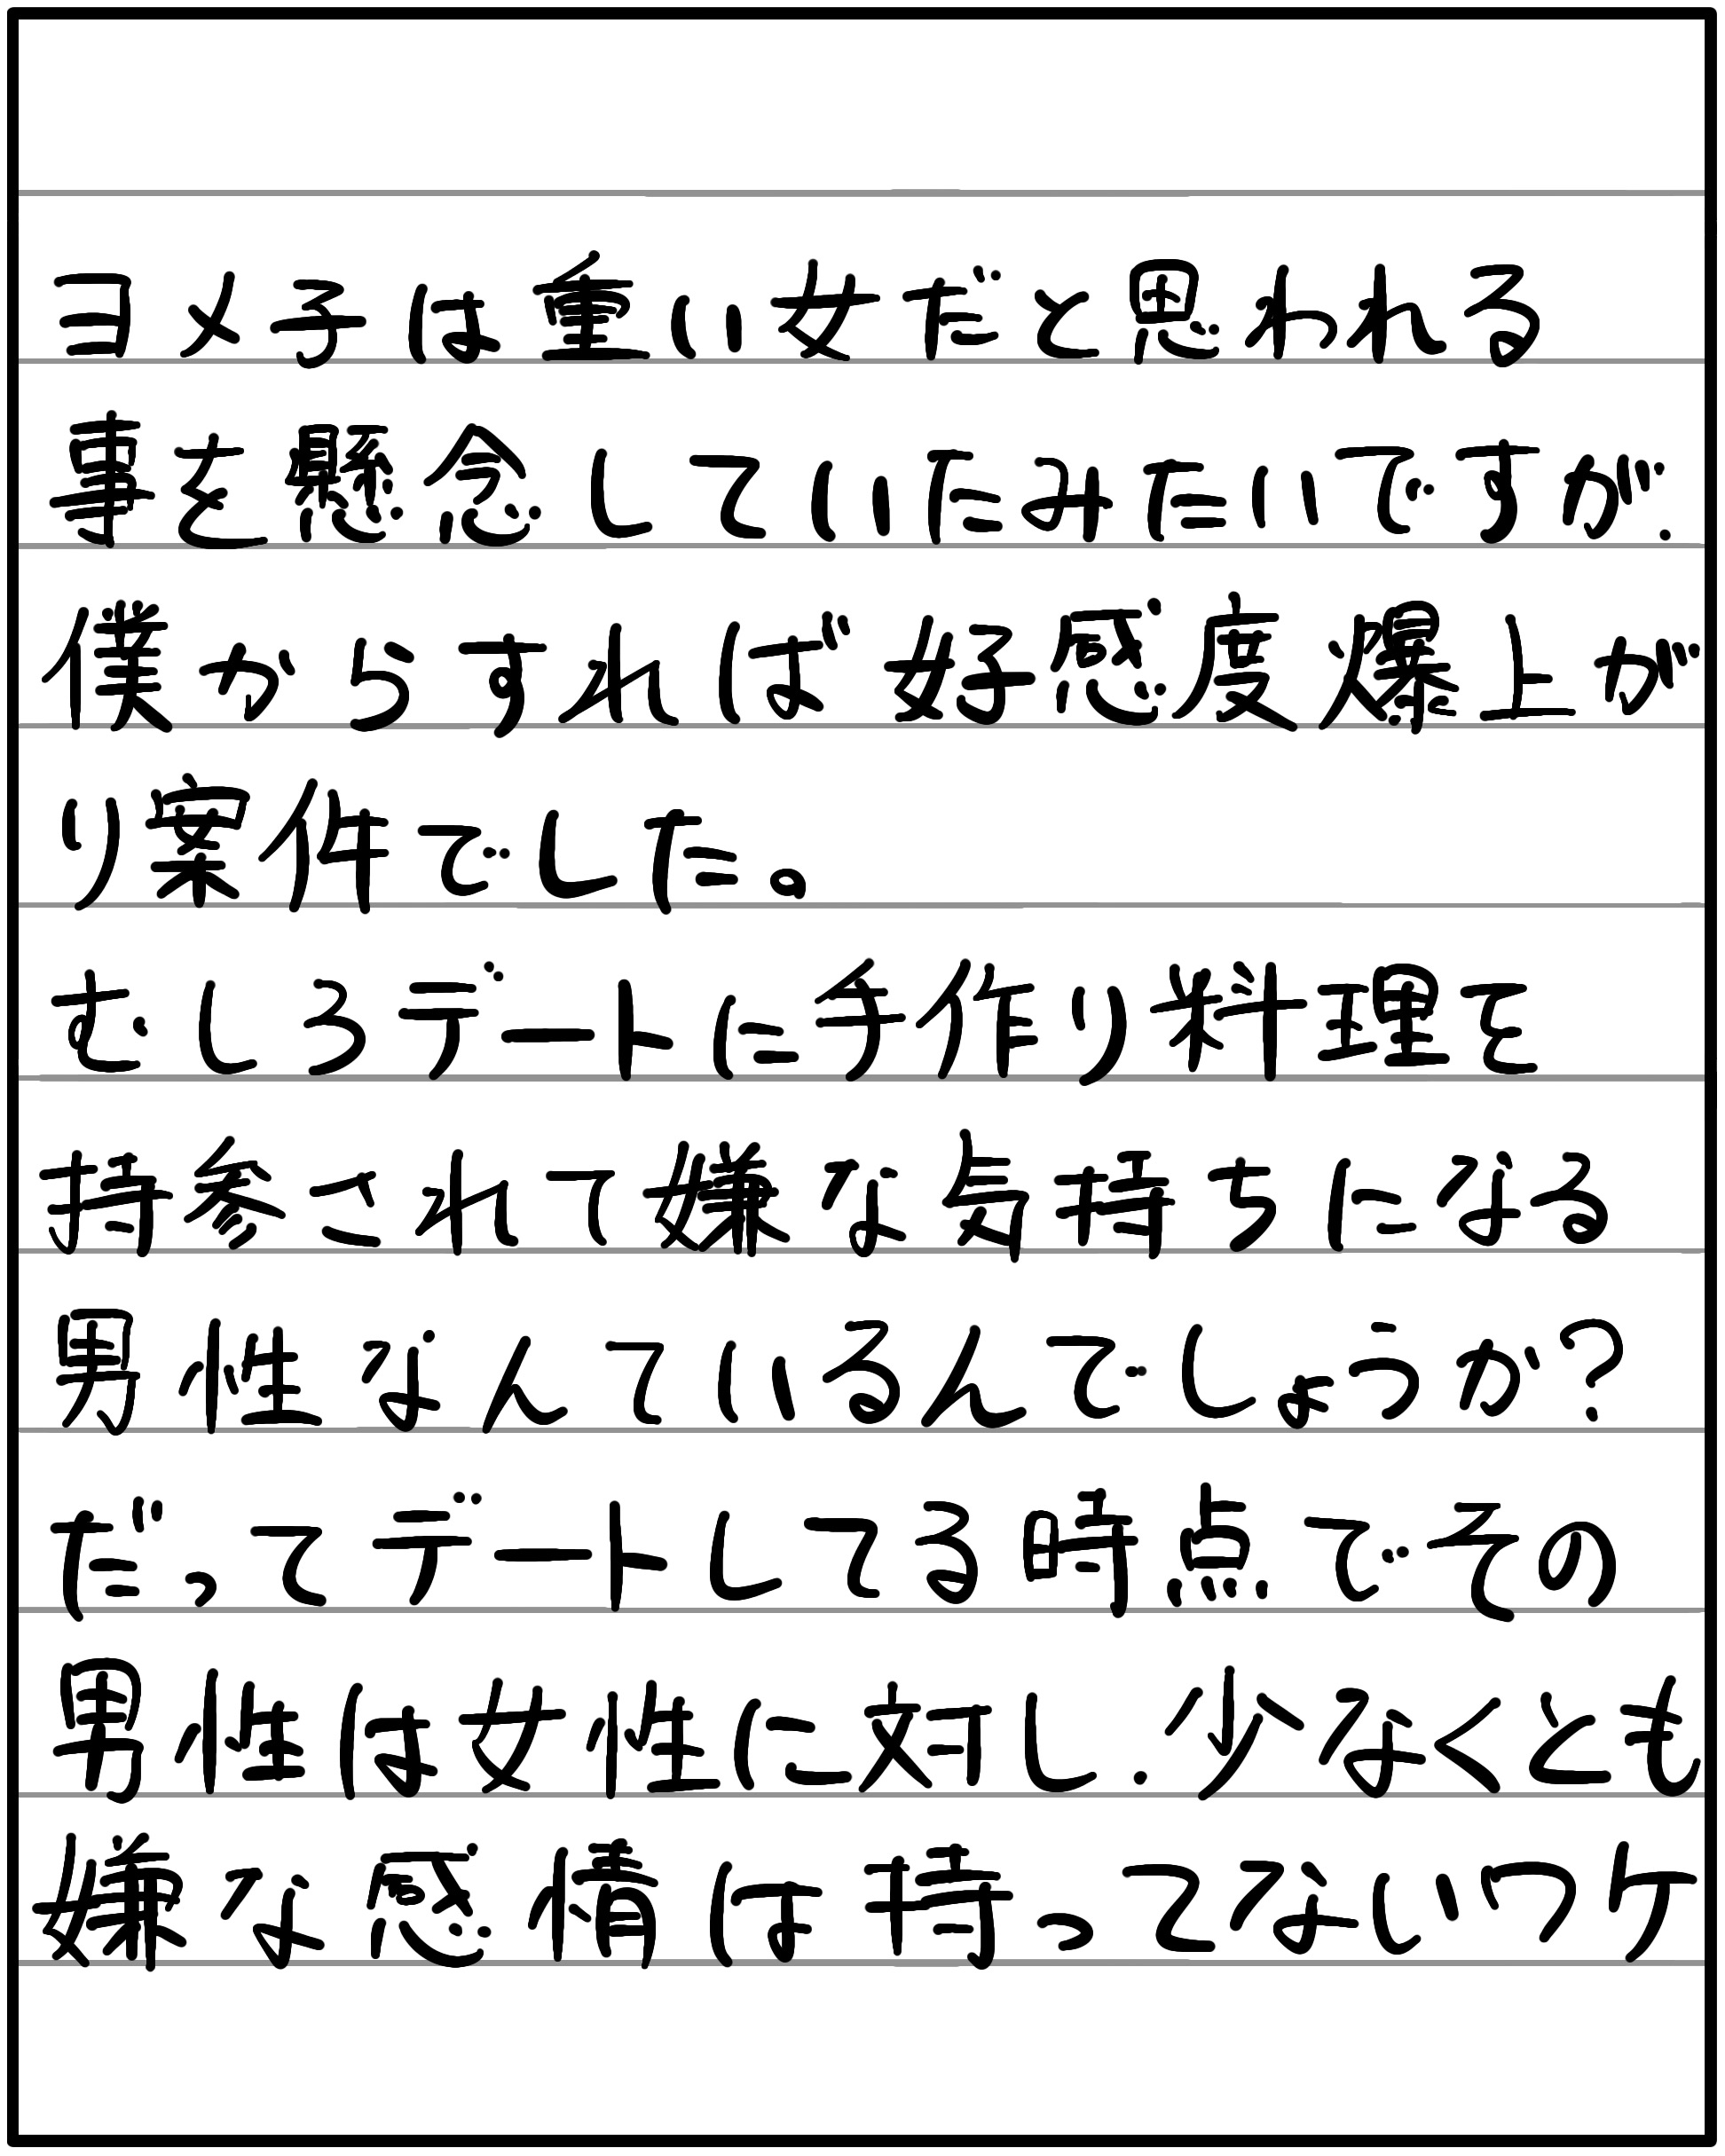 ヨメ子は重い女だと思われる
事を懸念していたみたいですが.
僕からすれば好感度爆上が
り案件でした。
むしろデートに手作り料理を
持参されて嫌な気持ちになる
男性なんているんでしょうか?
だってデートしてる時点でその
男性は女性に対し.少なくとも
嫌な感情は持ってないワケ